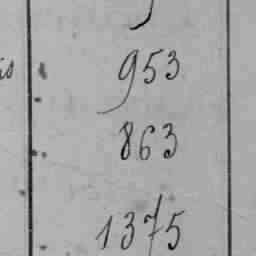 953
863
1375